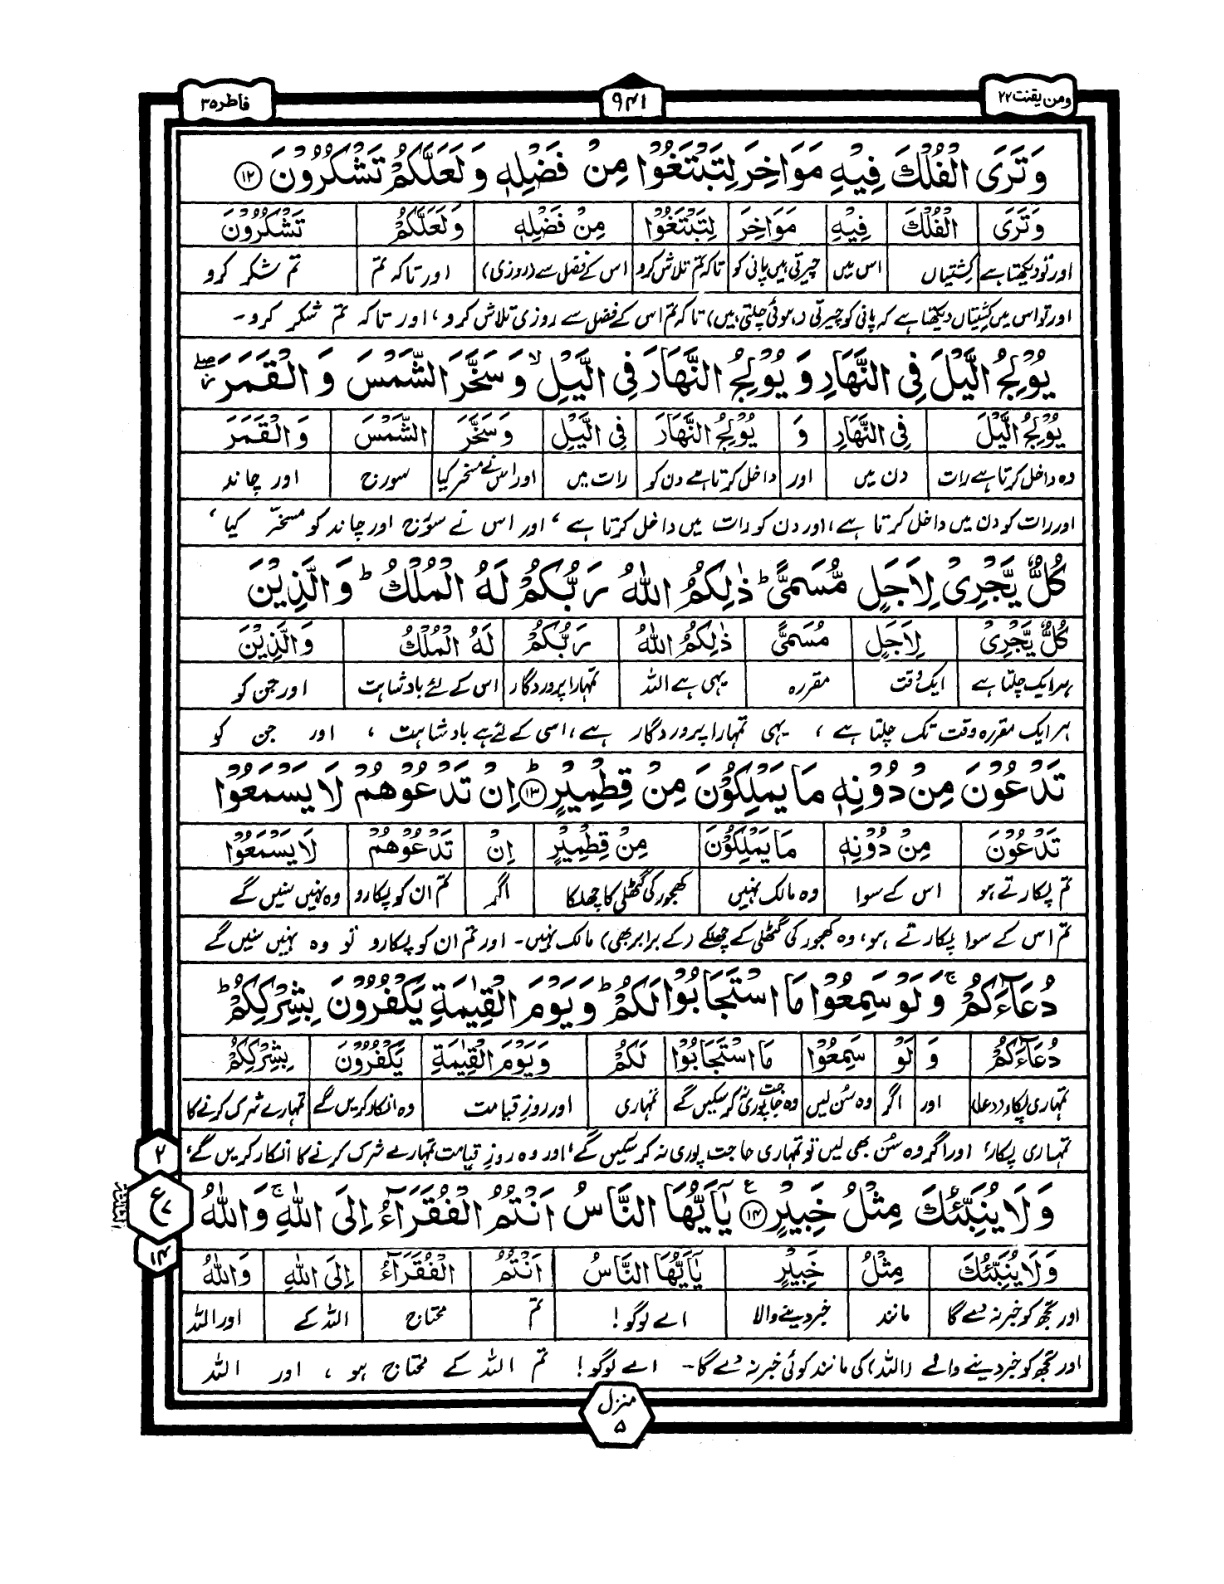 ومن یقنت ۲۲
۹۴۱
فاطر ۳۵
وَتَرَی الْفُلْكَ فِیْهِ مَوَاخِرَ لِتَبْتَغُوْا مِنْ فَضْلِهٖ وَلَعَلَّكُمْ تَشْكُرُوْنَ ۝۱۲
وَتَرَی الْفُلْكَ فِیْهِ مَوَاخِرَ لِتَبْتَغُوْا مِنْ فَضْلِهٖ وَلَعَلَّكُمْ تَشْكُرُوْنَ
اور تو دیکھتا ہے کشتیاں اس میں چیرتی ہیں پانی کو تاکہ تم تلاش کرو اس کے فضل سے (روزی) اور تاکہ تم تم شکر کرو
اور تو اس میں کشتیاں دیکھتا ہے کہ پانی کو چیرتی (ہوئی چلتی ہیں) تاکہ تم اس کے فضل سے روزی تلاش کرو، اور تاکہ تم شکر کرو۔
یُوْلِجُ الَّیْلَ فِی النَّهَارِ وَیُوْلِجُ النَّهَارَ فِی الَّیْلِ ۙ وَسَخَّرَ الشَّمْسَ وَالْقَمَرَ ۖ
یُوْلِجُ الَّیْلَ فِی النَّهَارِ وَ یُوْلِجُ النَّهَارَ فِی الَّیْلِ وَسَخَّرَ الشَّمْسَ وَالْقَمَرَ
وہ داخل کرتا ہے رات دن میں اور داخل کرتا ہے دن کو رات میں اور اس نے مسخر کیا سورج اور چاند
اور رات کو دن میں داخل کرتا ہے، اور دن کو رات میں داخل کرتا ہے، اور اس نے سورج اور چاند کو مسخّر کیا،
كُلٌّ یَّجْرِیْ لِاَجَلٍ مُّسَمًّی ؕ ذٰلِكُمُ اللّٰهُ رَبُّكُمْ لَهُ الْمُلْكُ ؕ وَالَّذِیْنَ
كُلٌّ یَّجْرِیْ لِاَجَلٍ مُسَمًّی ذٰلِكُمُ اللّٰهُ رَبُّكُمْ لَهُ الْمُلْكُ وَالَّذِیْنَ
ہر ایک چلتا ہے ایک وقت مقررہ یہی ہے اللہ تمہارا پروردگار اس کے لئے بادشاہت اور جن کو
ہر ایک مقررہ وقت تک چلتا ہے، یہی تمہارا پروردگار ہے، اسی کے لئے ہے بادشاہت، اور جن کو
تَدْعُوْنَ مِنْ دُوْنِهٖ مَا یَمْلِكُوْنَ مِنْ قِطْمِیْرٍ ؕ۝۱۳ اِنْ تَدْعُوْهُمْ لَا یَسْمَعُوْا
تَدْعُوْنَ مِنْ دُوْنِهٖ مَا یَمْلِكُوْنَ مِنْ قِطْمِیْرٍ اِنْ تَدْعُوْهُمْ لَا یَسْمَعُوْا
تم پکارتے ہو اس کے سوا وہ مالک نہیں کھجور کی گٹھلی کا چھلکا اگر تم ان کو پکارو وہ نہیں سنیں گے
تم اس کے سوا پکارتے ہو، وہ کھجور کی گٹھلی کے چھلکے (کے برابر بھی) مالک نہیں۔ اور تم ان کو پکارو تو وہ نہیں سنیں گے
دُعَآءَكُمْ ۚ وَلَوْ سَمِعُوْا مَا اسْتَجَابُوْا لَكُمْ ؕ وَیَوْمَ الْقِیٰمَةِ یَكْفُرُوْنَ بِشِرْكِكُمْ ؕ
دُعَآءَكُمْ وَ لَوْ سَمِعُوْا مَا اسْتَجَابُوْا لَكُمْ وَیَوْمَ الْقِیٰمَةِ یَكْفُرُوْنَ بِشِرْكِكُمْ
تمہاری پکار (دعا) اور اگر وہ سُن لیں وہ حاجت پوری نہ کر سکیں گے تمہاری اور روزِ قیامت وہ انکار کریں گے تمہارے شرک کرنے کا
تمہاری پکار، اور اگر وہ سُن بھی لیں تو تمہاری حاجت پوری نہ کر سکیں گے، اور وہ روزِ قیامت تمہارے شرک کرنے کا انکار کریں گے،
وَلَا یُنَبِّئُكَ مِثْلُ خَبِیْرٍ ۝۱۴ ع یٰۤاَیُّهَا النَّاسُ اَنْتُمُ الْفُقَرَآءُ اِلَی اللّٰهِ ۚ وَاللّٰهُ
۲
ع ۷
۱۴
وَلَا یُنَبِّئُكَ مِثْلُ خَبِیْرٍ یٰۤاَیُّهَا النَّاسُ اَنْتُمُ الْفُقَرَآءُ اِلَی اللّٰهِ وَاللّٰهُ
اور تجھ کو خبر نہ دے گا مانند خبر دینے والا اے لوگو! تم محتاج اللہ کے اور اللہ
اور تجھ کو خبر دینے والے (اللہ) کی مانند کوئی خبر نہ دے گا۔ اے لوگو! تم اللہ کے محتاج ہو، اور اللہ
منزل ۵